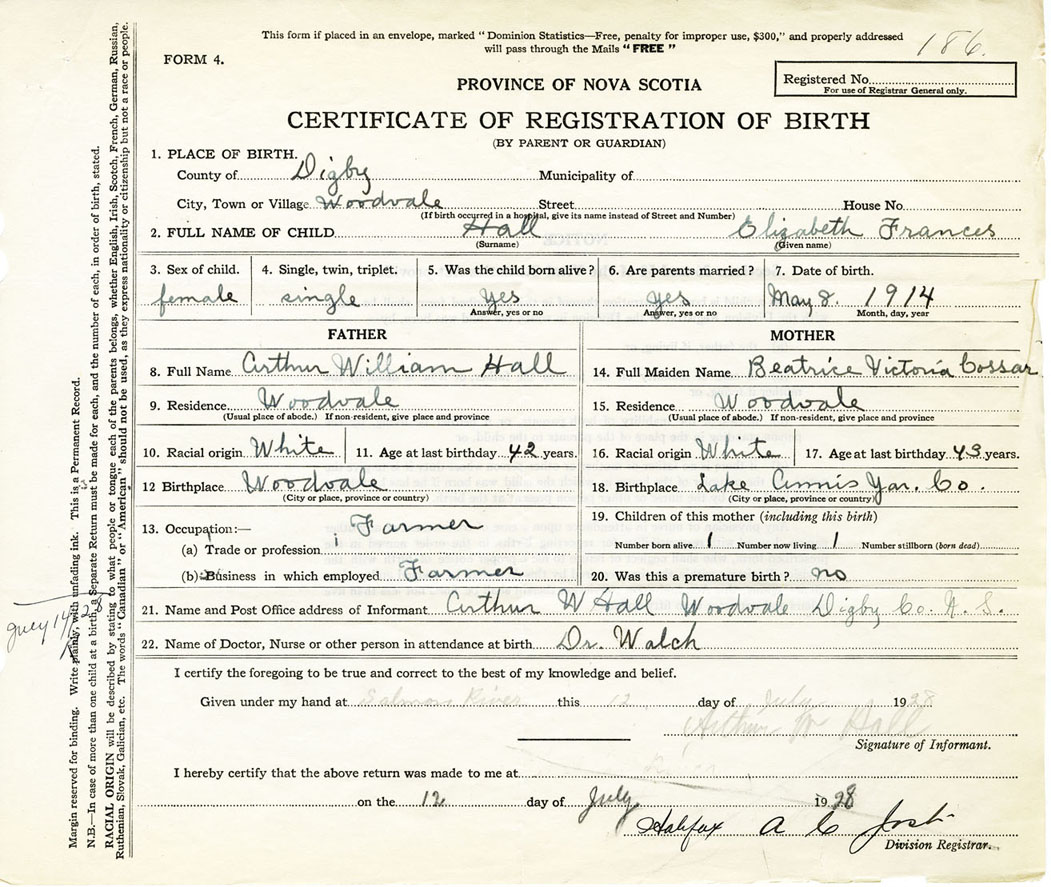 This form if placed in an envelope, marked "Dominion Statistics—Free, penalty for improper use, $300," and properly addressed
will pass through the Mails "FREE"
186.
FORM 4.
PROVINCE OF NOVA SCOTIA
Registered No.
For use of Registrar General only.
CERTIFICATE OF REGISTRATION OF BIRTH
(BY PARENT OR GUARDIAN)
1. PLACE OF BIRTH.
County of Digby Municipality of
City, Town or Village Woodvale Street House No.
(If birth occurred in a hospital, give its name instead of Street and Number)
2. FULL NAME OF CHILD Hall Elizabeth Frances
(Surname) (Given name)
3. Sex of child. 4. Single, twin, triplet. 5. Was the child born alive? 6. Are parents married? 7. Date of birth.
female single yes yes May 8. 1914
Answer, yes or no Answer, yes or no Month, day, year
FATHER MOTHER
8. Full Name Arthur William Hall 14. Full Maiden Name Beatrice Victoria Cossar
9. Residence Woodvale 15. Residence Woodvale
(Usual place of abode.) If non-resident, give place and province (Usual place of abode.) If non-resident, give place and province
10. Racial origin White 11. Age at last birthday 42 years. 16. Racial origin White 17. Age at last birthday 43 years.
12 Birthplace Woodvale 18. Birthplace Lake Annis Yar. Co.
(City or place, province or country) (City or place, province or country)
13. Occupation:— Farmer 19. Children of this mother (including this birth)
(a) Trade or profession Number born alive 1 Number now living 1 Number stillborn (born dead)
(b) Business in which employed Farmer 20. Was this a premature birth? no
21. Name and Post Office address of Informant Arthur W Hall Woodvale Digby Co. N. S.
22. Name of Doctor, Nurse or other person in attendance at birth Dr. Walch
I certify the foregoing to be true and correct to the best of my knowledge and belief.
Given under my hand at Salmon River this 12 day of July 1928
Arthur W Hall
Signature of Informant.
I hereby certify that the above return was made to me at
on the 12 day of July 1928
Halifax A C Jost
Division Registrar.
Margin reserved for binding. Write plainly, with unfading ink. This is a Permanent Record.
N.B.—In case of more than one child at a birth, a Separate Return must be made for each, and the number of each, in order of birth, stated.
RACIAL ORIGIN will be described by stating to what people or tongue each of the parents belongs, whether English, Irish, Scotch, French, German, Russian,
Ruthenian, Slovak, Galician, etc. The words "Canadian" or "American" should not be used, as they express nationality or citizenship but not a race or people.
July 14/28